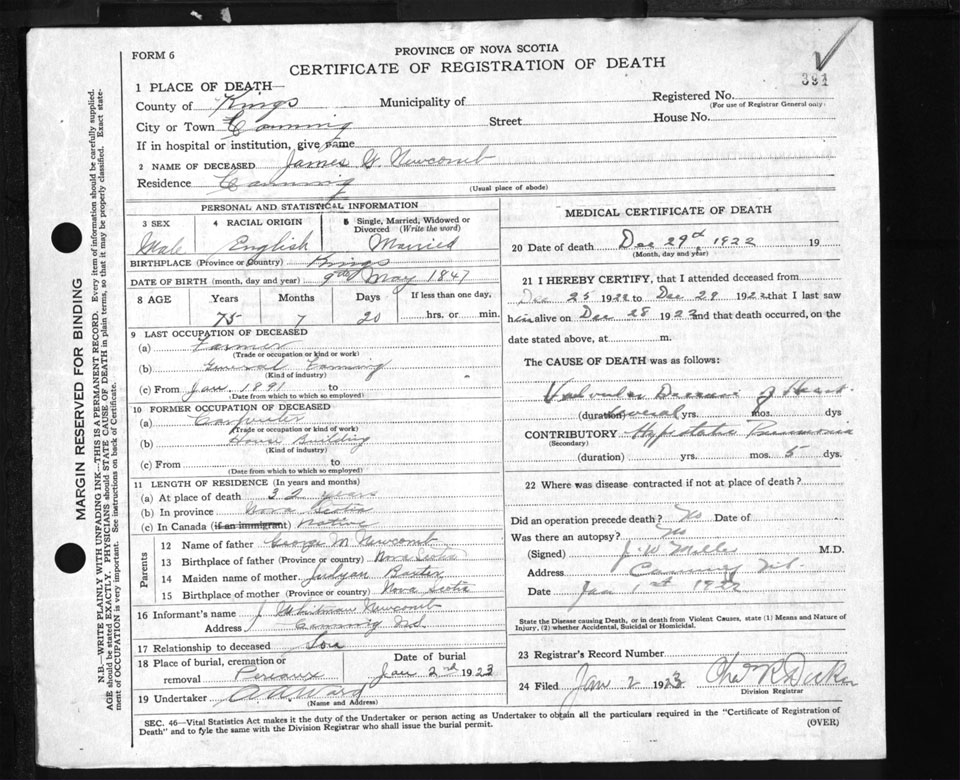 FORM 6
PROVINCE OF NOVA SCOTIA
CERTIFICATE OF REGISTRATION OF DEATH
391
1 PLACE OF DEATH—
County of Kings Municipality of Registered No.
(For use of Registrar General only)
City or Town Canning Street House No.
If in hospital or institution, give name
2 NAME OF DECEASED James G. Newcomb
Residence Canning
(Usual place of abode)
PERSONAL AND STATISTICAL INFORMATION
3 SEX 4 RACIAL ORIGIN 5 Single, Married, Widowed or Divorced (Write the word)
Male English Married
BIRTHPLACE (Province or Country) Kings
DATE OF BIRTH (month, day and year) 9th May 1847
8 AGE Years Months Days If less than one day,
75 7 20 hrs. or min.
9 LAST OCCUPATION OF DECEASED
(a) Farmer
(Trade or occupation or kind or work)
(b) General Farming
(Kind of industry)
(c) From Jan. 1891 to
(Date from which to which so employed)
10 FORMER OCCUPATION OF DECEASED
(a) Carpenter
(Trade or occupation or kind of work)
(b) House Building
(Kind of industry)
(c) From to
(Date from which to which so employed)
11 LENGTH OF RESIDENCE (In years and months)
(a) At place of death 32 years
(b) In province Nova Scotia
(c) In Canada (if an immigrant) Native
Parents
12 Name of father George M Newcomb
13 Birthplace of father (Province or country) Nova Scotia
14 Maiden name of mother Baxter
15 Birthplace of mother (Province or country) Nova Scotia
16 Informant's name J Whitman Newcomb
Address Canning N.S.
17 Relationship to deceased Son
18 Place of burial, cremation or removal Date of burial
Pereaux Jan 2nd 1923
19 Undertaker Ward
(Name and Address)
MEDICAL CERTIFICATE OF DEATH
20 Date of death Dec 29th 1922 19
(Month, day and year)
21 I HEREBY CERTIFY, that I attended deceased from
Dec 25 1922 to Dec 29 1922 that I last saw
him alive on Dec 28 1922 and that death occurred, on the
date stated above, at m.
The CAUSE OF DEATH was as follows:
Valvular Disease of Heart
(duration) Several yrs. mos. dys
CONTRIBUTORY Hypostatic Pneumonia
(Secondary)
(duration) yrs. mos. 5 dys.
22 Where was disease contracted if not at place of death?
Did an operation precede death? No Date of
Was there an autopsy? No
(Signed) J. W. Miller M.D.
Address Canning N.S.
Date Jan 1st 1922
State the Disease causing Death, or in death from Violent Causes, state (1) Means and Nature of
Injury, (2) whether Accidental, Suicidal or Homicidal.
23 Registrar's Record Number
24 Filed Jan 2 1923
Division Registrar
SEC. 46—Vital Statistics Act makes it the duty of the Undertaker or person acting as Undertaker to obtain all the particulars required in the "Certificate of Registration of
Death" and to fyle the same with the Division Registrar who shall issue the burial permit. (OVER)
MARGIN RESERVED FOR BINDING
N.B.—WRITE PLAINLY WITH UNFADING INK—THIS IS A PERMANENT RECORD. Every item of information should be carefully supplied.
AGE should be stated EXACTLY. PHYSICIANS should STATE CAUSE OF DEATH in plain terms, so that it may be properly classified. Exact state-
ment of OCCUPATION is very important. See instructions on back of Certificate.